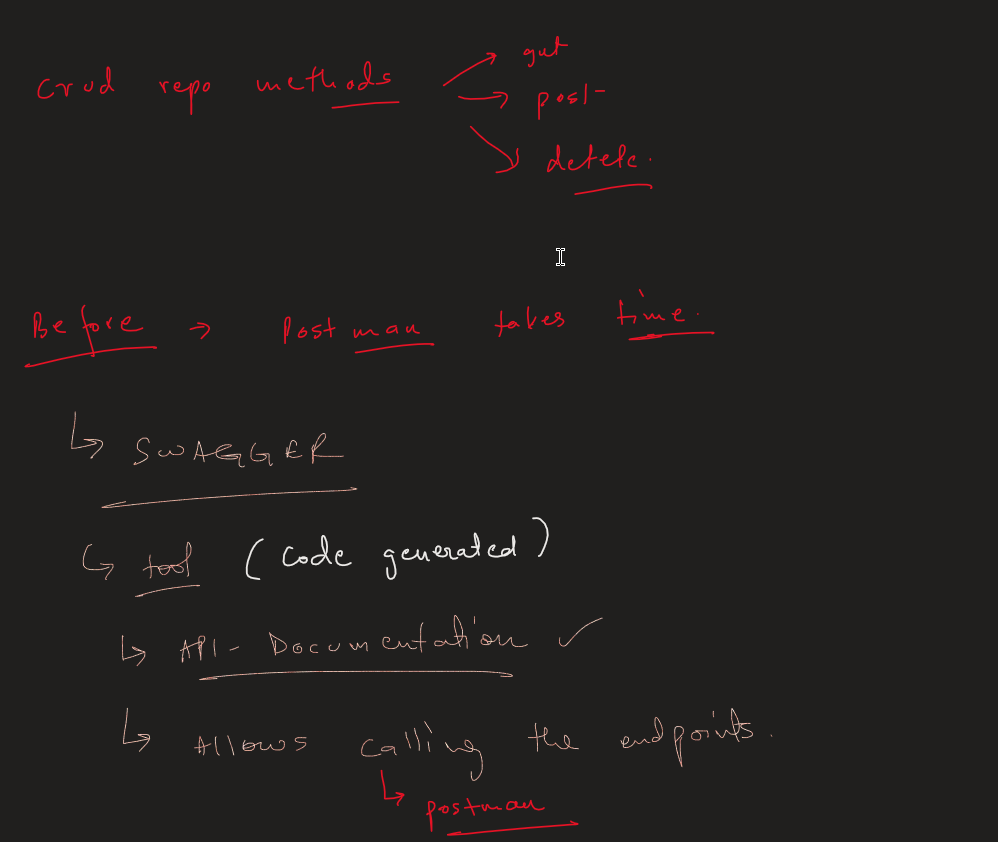 crud repo methods → get
→ post
→ delete.
Before → Postman takes time.
↳ SWAGGER
↳ tool (code generated)
↳ API - Documentation ✓
↳ Allows calling the endpoints.
↳ postman